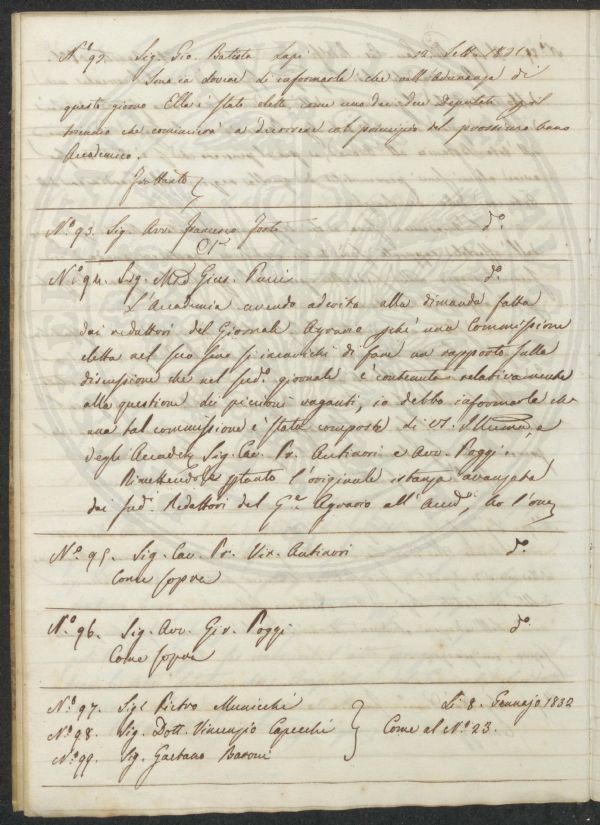 N.º 92. Sig. Gio. Batista Lapi 12. Sett. 1831
Sono in dovere di informarla che nell'adunanza di
questo giorno Ella è stata eletta come uno dei due Deputati pel
che comincierà a decorrere col principio del prossimo anno
Accademico.
Frattanto
N.º 93. Sig. Avv. Francesco Forti d.º
N.º 94. Sig. Giu.s. Pucci d.º
L'Accademia avendo aderito alla dimanda fatta
dai redattori del Giornale Agrario pchè una Commissione
eletta nel suo seno si incarichi di fare un rapporto sulla
discussione che nel sud.º giornale è contenuta relativamente
alla questione dei piccioni vaganti, io debbo informarla che
una tal commissione è stata composta di VS. Illuma, e
degli Accadci Sig. Cav. Pr. Antinori e Avv. Poggi.
Rimettendole ptanto l'originale istanza avanzata
dai sud.i Redattori del G.le Agrario all'Accad.a, ho l'onre
N.º 95. Sig. Cav. Pr. Vin. Antinori d.º
Come sopra
N.º 96. Sig. Avv. Gir. Poggi d.º
Come sopra
N.º 97. Sig. Pietro Municchi Li 8. Gennajo 1832
N.º 98. Sig. Dott. Vincenzio Capecchi Come al N.º 23.
N.º 99. Sig. Gaetano Baroni